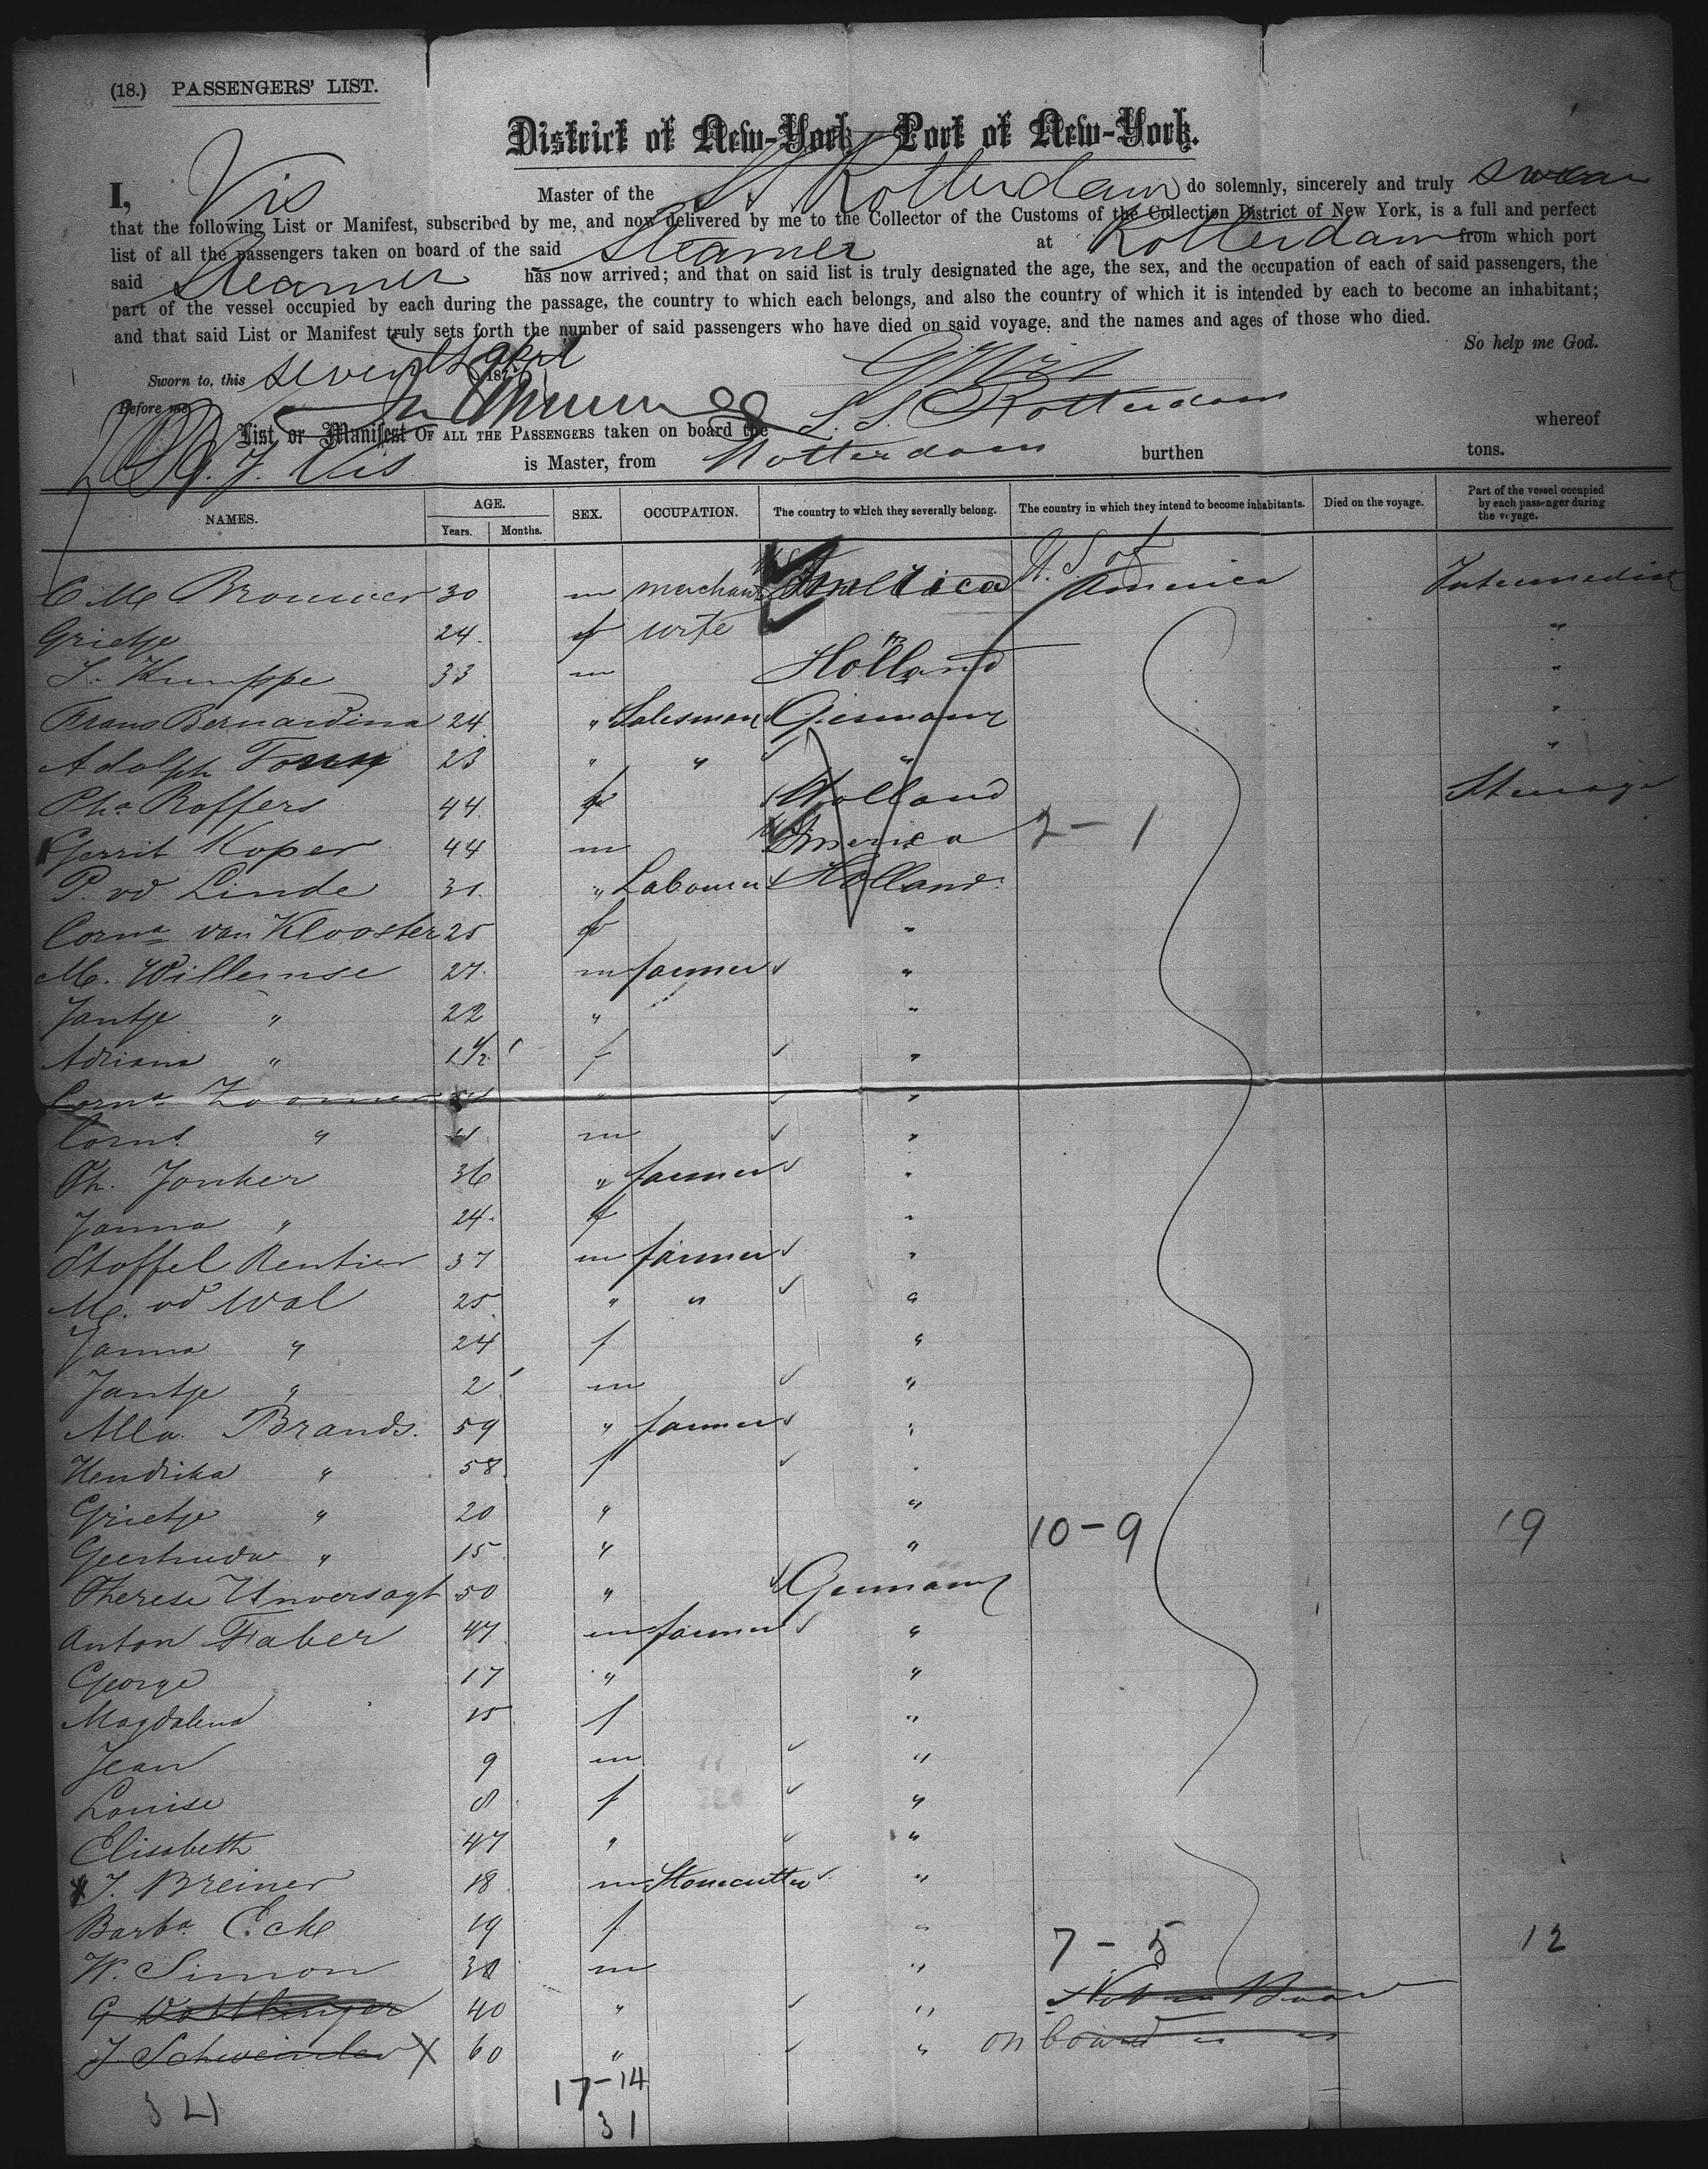 (18.) PASSENGERS' LIST.
District of New-York Port of New-York.
I, Vis Master of the SS Rotterdam do solemnly, sincerely and truly swear
that the following List or Manifest, subscribed by me, and now delivered by me to the Collector of the Customs of the Collection District of New York, is a full and perfect
list of all the passengers taken on board of the said Steamer at Rotterdam from which port
said Steamer has now arrived; and that on said list is truly designated the age, the sex, and the occupation of each of said passengers, the
part of the vessel occupied by each during the passage, the country to which each belongs, and also the country of which it is intended by each to become an inhabitant;
and that said List or Manifest truly sets forth the number of said passengers who have died on said voyage, and the names and ages of those who died.
So help me God.
Sworn to, this seventh april 187
Before me
List or Manifest OF ALL THE PASSENGERS taken on board the S.S. Rotterdam whereof
G. J. Vis is Master, from Rotterdam burthen tons.
NAMES. AGE. Years. Months. SEX. OCCUPATION. The country to which they severally belong. The country in which they intend to become inhabitants. Died on the voyage. Part of the vessel occupied by each passenger during the voyage.
C M Brouwer 30 m merchant America U. S of America Intermediate
Grietje 24 f wife "
J. Kumppe 33 m Holland "
Frans Bernardina 24 " Salesman Germany "
Adolph 23 " " " "
Pha Roffers 44 f Holland Steerage
Gerrit Koper 44 m America 2 - 1
P. vd Linde 31 " Labourer Holland
Corna van Klooster 25 f "
M. Willemse 27 m farmer "
Jantje " 22 " "
Adriana " 1 1/2 f "
Corna " "
Corns " m "
Th. Jonker 36 " farmer "
Janna " 24 f "
Stoffel Rentier 37 m farmer "
M. vd Wal 25 " " "
Janna " 24 f "
Jantje " 2 m "
Alla Brands. 59 " farmer "
Hendrika " 58 f "
Grietje " 20 " "
Geertruda " 15 " " 10 - 9 19
Therese Unversagt 50 " Germany
Anton Faber 47 m farmer "
George 17 " "
Magdalena 15 f "
Jean 9 m "
Louise 8 f "
Elisabeth 47 " "
J. Breiner 18 m Stonecutter "
Barba Eck 19 f " 7 - 5 12
W. Simon 30 m "
G 40 " " Not on Board
J Schweinler X 60 " " on board " "
34 17-14
31